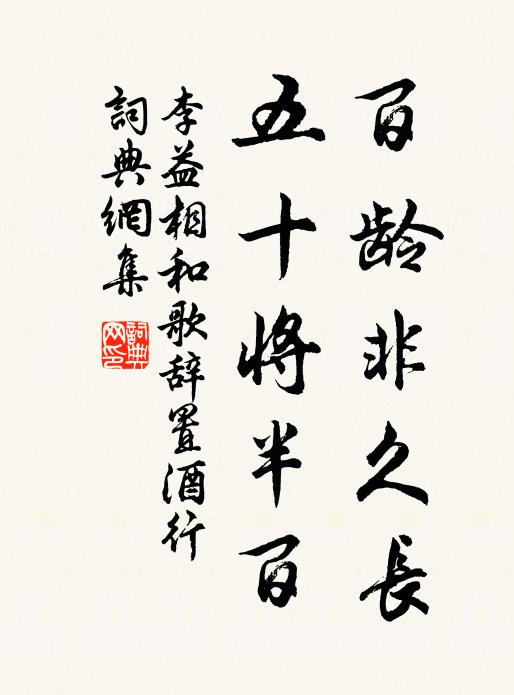 百龄非久長
五十将半百
李益相和歌辞置酒行
詞典網集
詞典网印